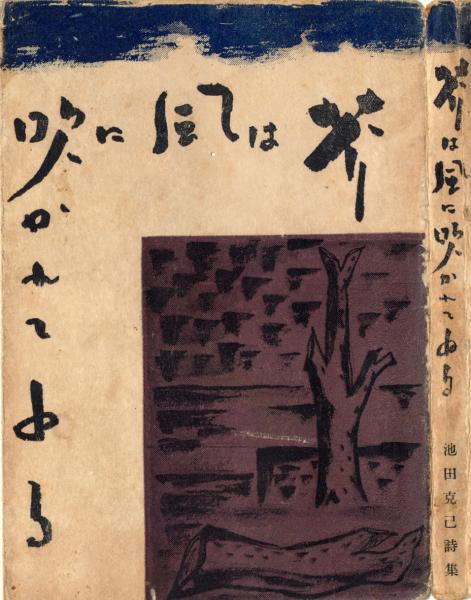 芥は風に
吹かれてゐる
芥は風に吹かれてゐる
池田克己詩集